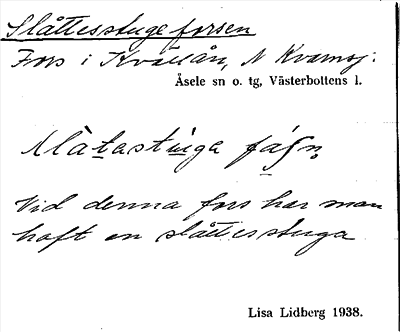 Slåttesstugeforsen
Fors i Kvällån, N Kvamsj.
Åsele sn o. tg, Västerbottens l.
Vid denna fors har man
haft en slåttesstuga
Lisa Lidberg 1938.